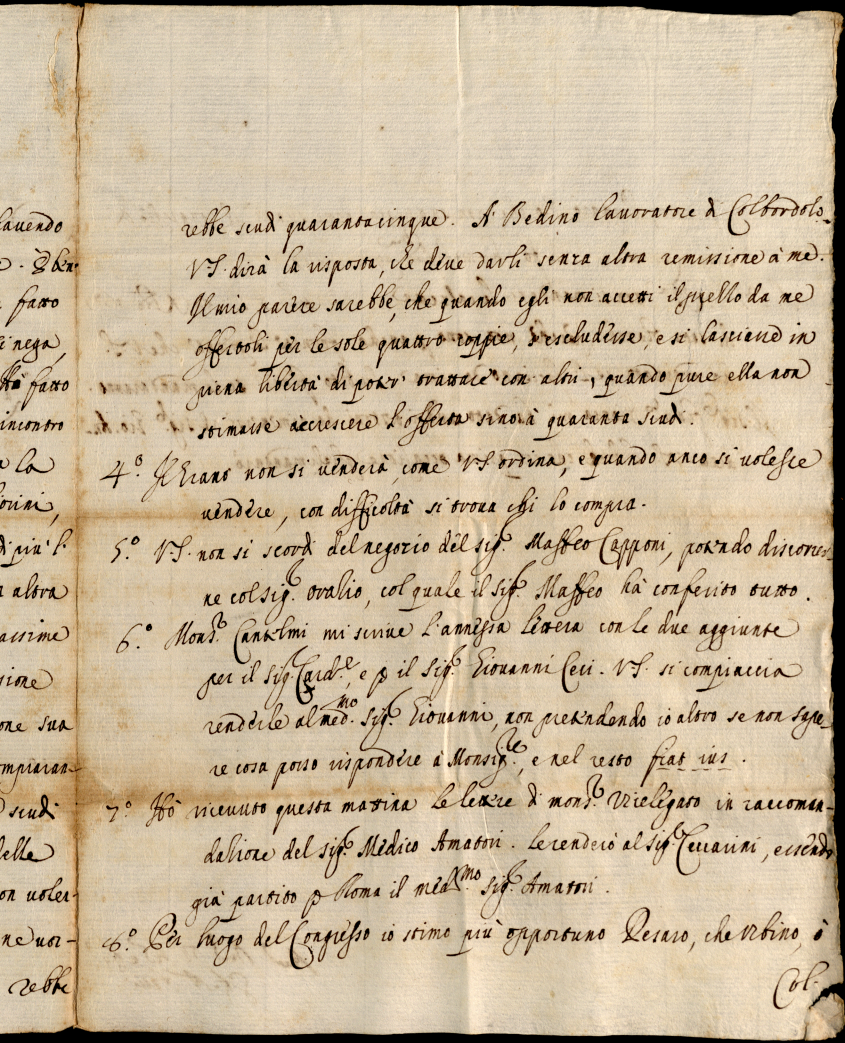 hauendo
fatto
i nega,
fatto
incontro
a la
orini,
di più l'
a altra
assime
sione
one sua
ompiacan-
scudi
delle
on voler
ne vor-
rebbe
rebbe scudi quarantacinque. A Bedino lauoratore di Colbordolo
VS. dirà la risposta, che deue darli senza altra remissione à me.
Il mio parere sarebbe, che quando egli non accetti il quello da me
offertoli per le sole quattro coppie, s'escludesse, e si lasciasse in
piena libertà di poter' trattare con altri, quando pure ella non
stimasse accrescere l'offerta sino à quaranta scudi.
4.º Il Grano non si venderà, come VS ordina, e quando anco si volesse
vendere, con difficoltà si troua chi lo compra.
5.º VS. non si scordi del negozio del sig.r Maffeo Capponi, potendo discorrer-
ne col sig.r Ovalio, col quale il sig.r Maffeo hà conferito tutto.
6.º Mons.r Cantelmi mi scriue l'annessa lettera con le due aggiunte
per il Sig.r Card.le, e p il Sig.r Giouanni Ceci. VS. si compiaccia
renderle al med.mo Sig.r Giouanni, non pretendendo io altro se non sape-
re cosa posso rispondere à Monsig.re, e nel resto fiat ius.
7.º Hò riceuuto questa mattina le lettere di mons.r Vicelegato in raccoman-
dazione del sig.r Medico Amatori. Le renderò al Sig.r Ceccarini, essendo
già partito p Roma il med.mo Sig.r Amatori.
8.º Per luogo del Congresso io stimo più opportuno Pesaro, che Urbino, ò
Col-